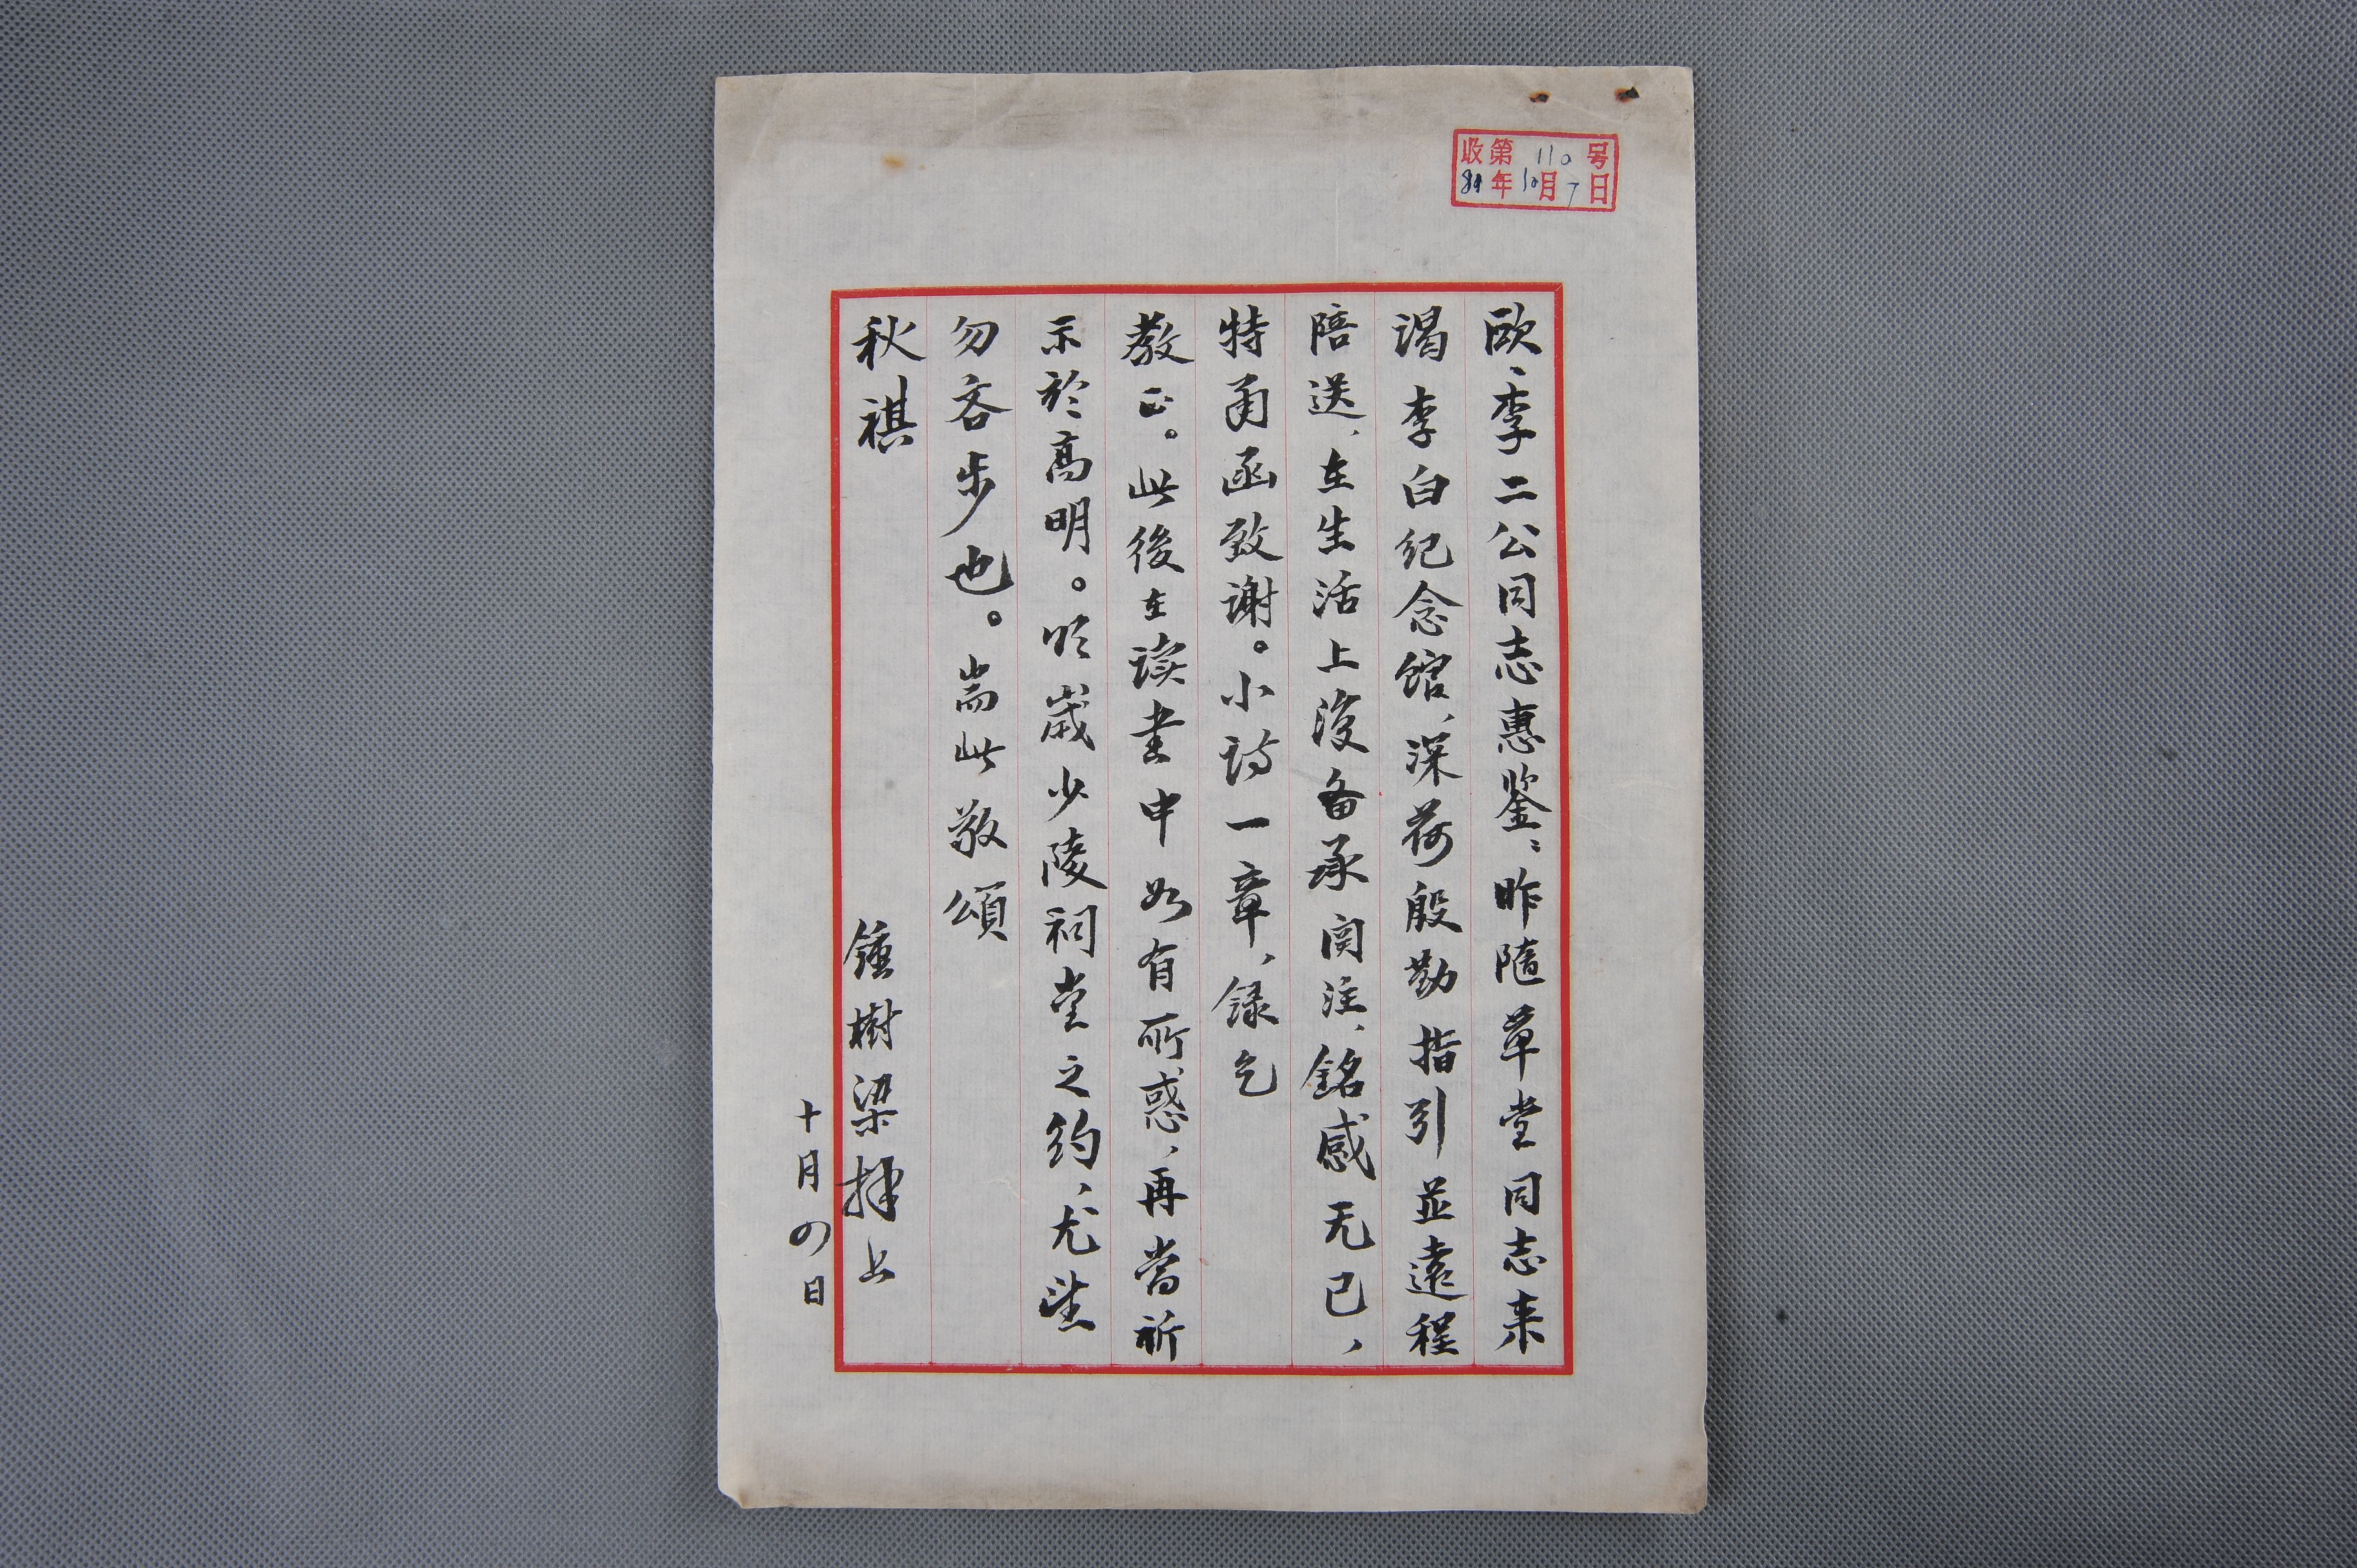 收第110号
84年10月7日
欧、李二公同志惠鉴：昨随草堂同志来
谒李白纪念馆，深荷殷勤指引並遠程
陪送，在生活上復备承关注，銘感无已，
特甬函致谢。小诗一章，録乞
教正。此後在读书中如有所惑，再当祈
示於高明。明歲少陵祠堂之约，尤望
勿吝步也。耑此敬頌
秋祺
鍾樹梁拜上
十月四日